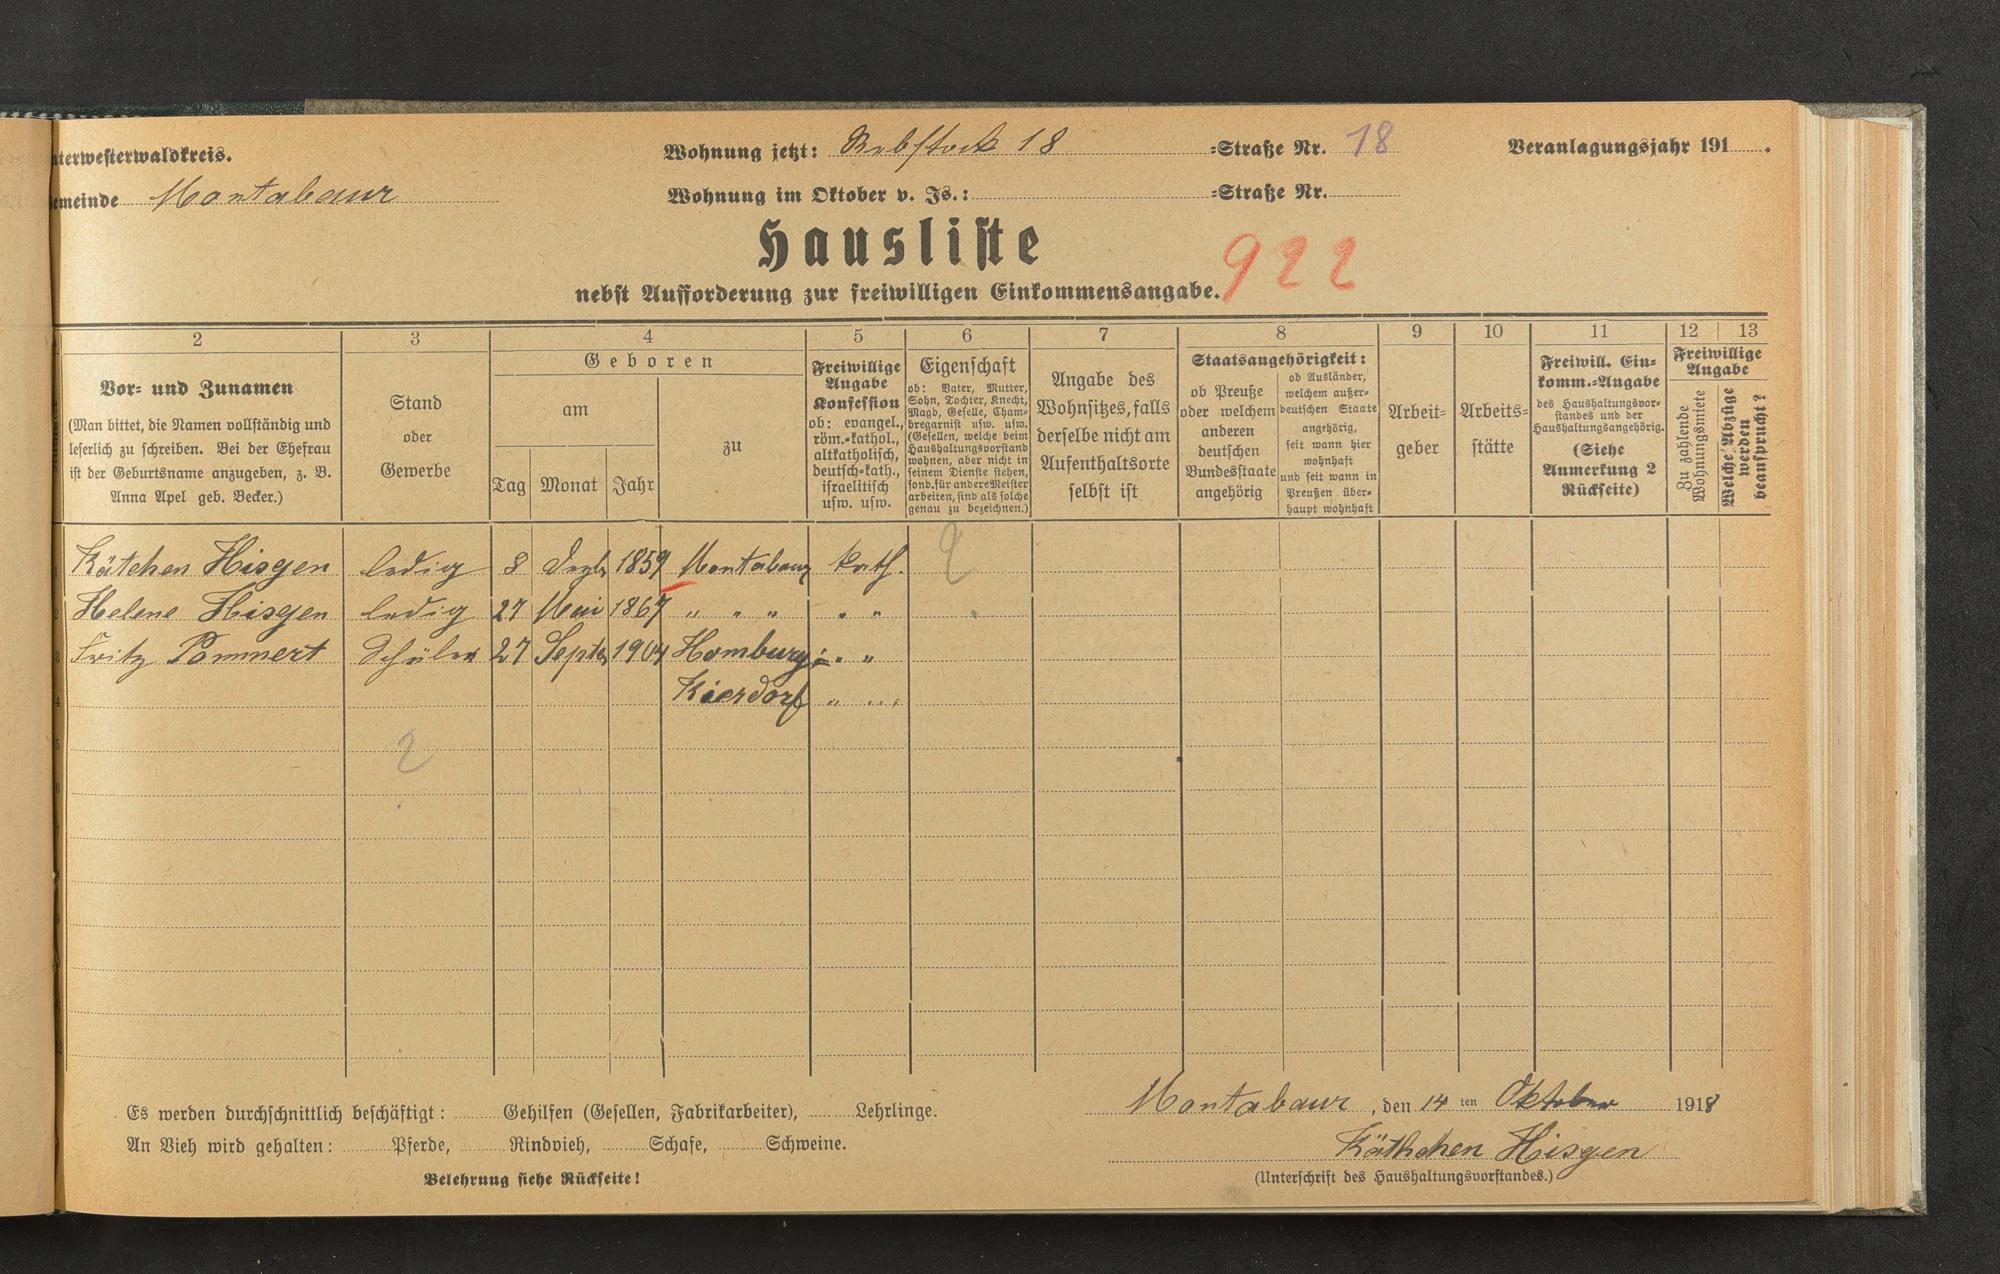 nterwesterwaldkreis.
Wohnung jetzt: Rebstock 18 =Straße Nr. 18
Veranlagungsjahr 191 .
emeinde Montabaur
Wohnung im Oktober v. Js.: =Straße Nr.
Hausliste
922
nebst Aufforderung zur freiwilligen Einkommensangabe.
2 3 4 5 6 7 8 9 10 11 12 13
Vor= und Zunamen
(Man bittet, die Namen vollständig und
leserlich zu schreiben. Bei der Ehefrau
ist der Geburtsname anzugeben, z. B.
Anna Apel geb. Becker.)
Stand
oder
Gewerbe
Geboren
am
Tag Monat Jahr
zu
Freiwillige
Angabe
Konfession
ob: evangel.,
röm.=kathol.,
altkatholisch,
deutsch=kath.,
israelitisch
usw. usw.
Eigenschaft
ob: Vater, Mutter,
Sohn, Tochter, Knecht,
Magd, Geselle, Cham=
bregarnist usw. usw.
(Gesellen, welche beim
Haushaltungsvorstand
wohnen, aber nicht in
seinem Dienste stehen,
sond. für andere Meister
arbeiten, sind als solche
genau zu bezeichnen.)
Angabe des
Wohnsitzes, falls
derselbe nicht am
Aufenthaltsorte
selbst ist
Staatsangehörigkeit:
ob Preuße
oder welchem
anderen
deutschen
Bundesstaate
angehörig
ob Ausländer,
welchem außer=
deutschen Staate
angehörig,
seit wann hier
wohnhaft
und seit wann in
Preußen über=
haupt wohnhaft
Arbeit=
geber
Arbeits=
stätte
Freiwill. Ein=
komm.=Angabe
des Haushaltungsvor=
standes und der
Haushaltungsangehörig.
(Siehe
Anmerkung 2
Rückseite)
Freiwillige
Angabe
Zu zahlende
Wohnungsmiete
Welche Abzüge
werden
beansprucht?
1 Kätchen Hisgen ledig 8 Dezb 1859 Montabaur kath. 2
2 Helene Hisgen ledig 27 Mai 1867 " " " " "
3 Fritz Pommert Schüler 27 Septb 1904 Homburg " "
4 Kierdorf " "
5
2
6
7
8
9
Es werden durchschnittlich beschäftigt: Gehilfen (Gesellen, Fabrikarbeiter), Lehrlinge.
Montabaur, den 14 ten Oktober 1918
An Vieh wird gehalten: Pferde, Rindvieh, Schafe, Schweine.
Käthchen Hisgen
Belehrung siehe Rückseite!
(Unterschrift des Haushaltungsvorstandes.)